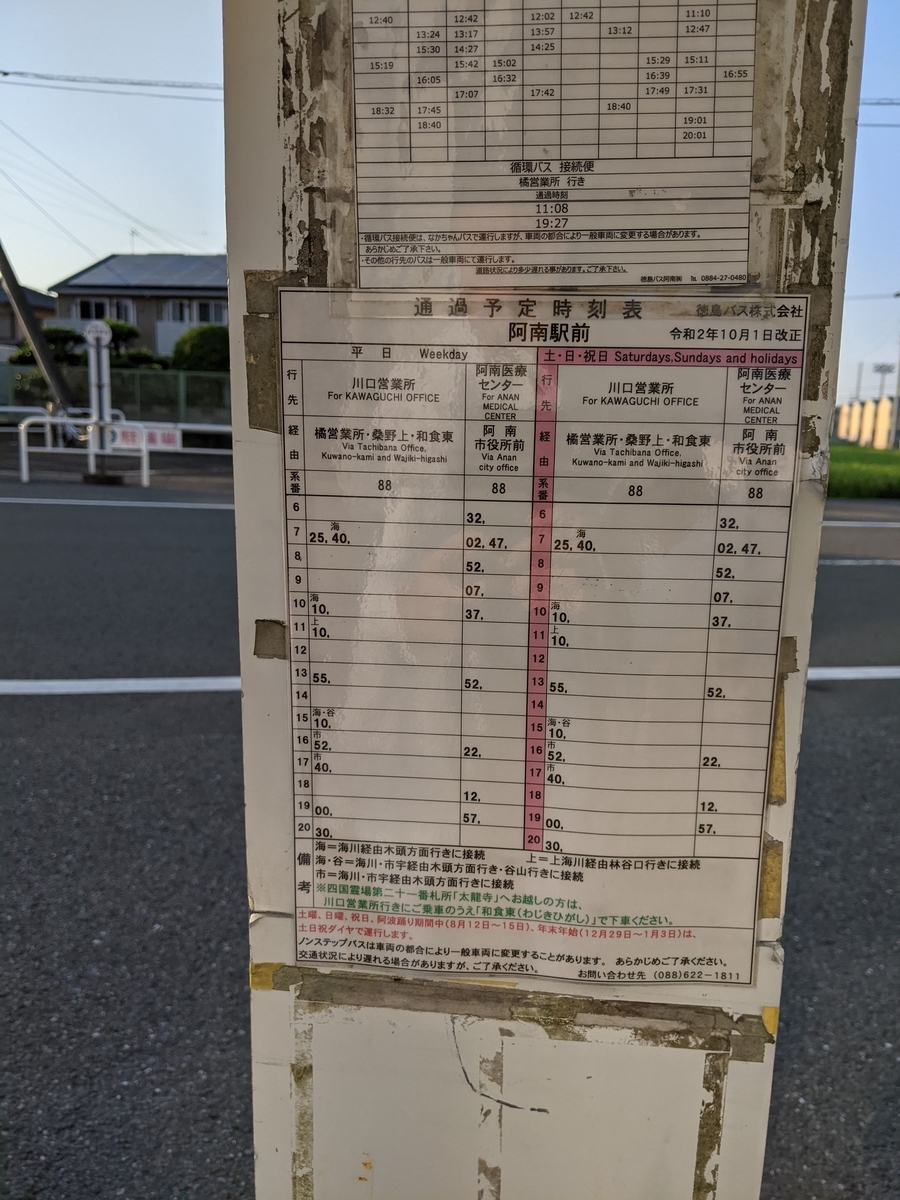 12:40 12:42 12:02 12:42 11:10
13:24 13:17 13:57 13:12 12:47
15:30 14:27 14:25
15:19 15:42 15:02 15:29 15:11
16:05 16:32 16:39 16:55
17:07 17:42 17:49 17:31
18:32 17:45 18:40
18:40 19:01
20:01
循環バス 接続便
橘営業所 行き
通過時刻
11:08
19:27
・循環バス接続便は、なかちゃんバスで運行しますが、車両の都合により一般車両に変更する場合があります。
あらかじめご了承下さい。
・その他の行先のバスは一般車両にて運行します。
道路状況により多少遅れる事があります。ご了承下さい。
徳島バス阿南㈱ ℡ 0884-27-0480
通過予定時刻表 徳島バス株式会社
阿南駅前 令和2年10月1日改正
平 日 Weekday 土・日・祝日 Saturdays,Sundays and holidays
行先 川口営業所 For KAWAGUCHI OFFICE 阿南医療センター For ANAN MEDICAL CENTER 行先 川口営業所 For KAWAGUCHI OFFICE 阿南医療センター For ANAN MEDICAL CENTER
経由 橘営業所・桑野上・和食東 Via Tachibana Office, Kuwano-kami and Wajiki-higashi 阿南市役所前 Via Anan city office 経由 橘営業所・桑野上・和食東 Via Tachibana Office, Kuwano-kami and Wajiki-higashi 阿南市役所前 Via Anan city office
系番 88 88 系番 88 88
6 32, 6 32,
7 25, 海40, 02, 47, 7 25, 海40, 02, 47,
8 52, 8 52,
9 07, 9 07,
10 海10, 37, 10 海10, 37,
11 上10, 11 上10,
12 12
13 55, 52, 13 55, 52,
14 14
15 海・谷10, 15 海・谷10,
16 市52, 22, 16 市52, 22,
17 市40, 17 市40,
18 12, 18 12,
19 00, 57, 19 00, 57,
20 30, 20 30,
備考 海=海川経由木頭方面行きに接続 上=上海川経由林谷口行きに接続
海・谷=海川・市宇経由木頭方面行き・谷山行きに接続
市=海川・市宇経由木頭方面行きに接続
※四国霊場第二十一番札所「太龍寺」へお越しの方は、
川口営業所行きにご乗車のうえ「和食東(わじきひがし)」で下車ください。
土曜、日曜、祝日、阿波踊り期間中(8月12日~15日)、年末年始(12月29日~1月3日)は、
土日祝ダイヤで運行します。
ノンステップバスは車両の都合により一般車両に変更することがあります。 あらかじめご了承ください。
交通状況により遅れる場合がありますが、ご了承ください。 お問い合わせ先 (088)622-1811